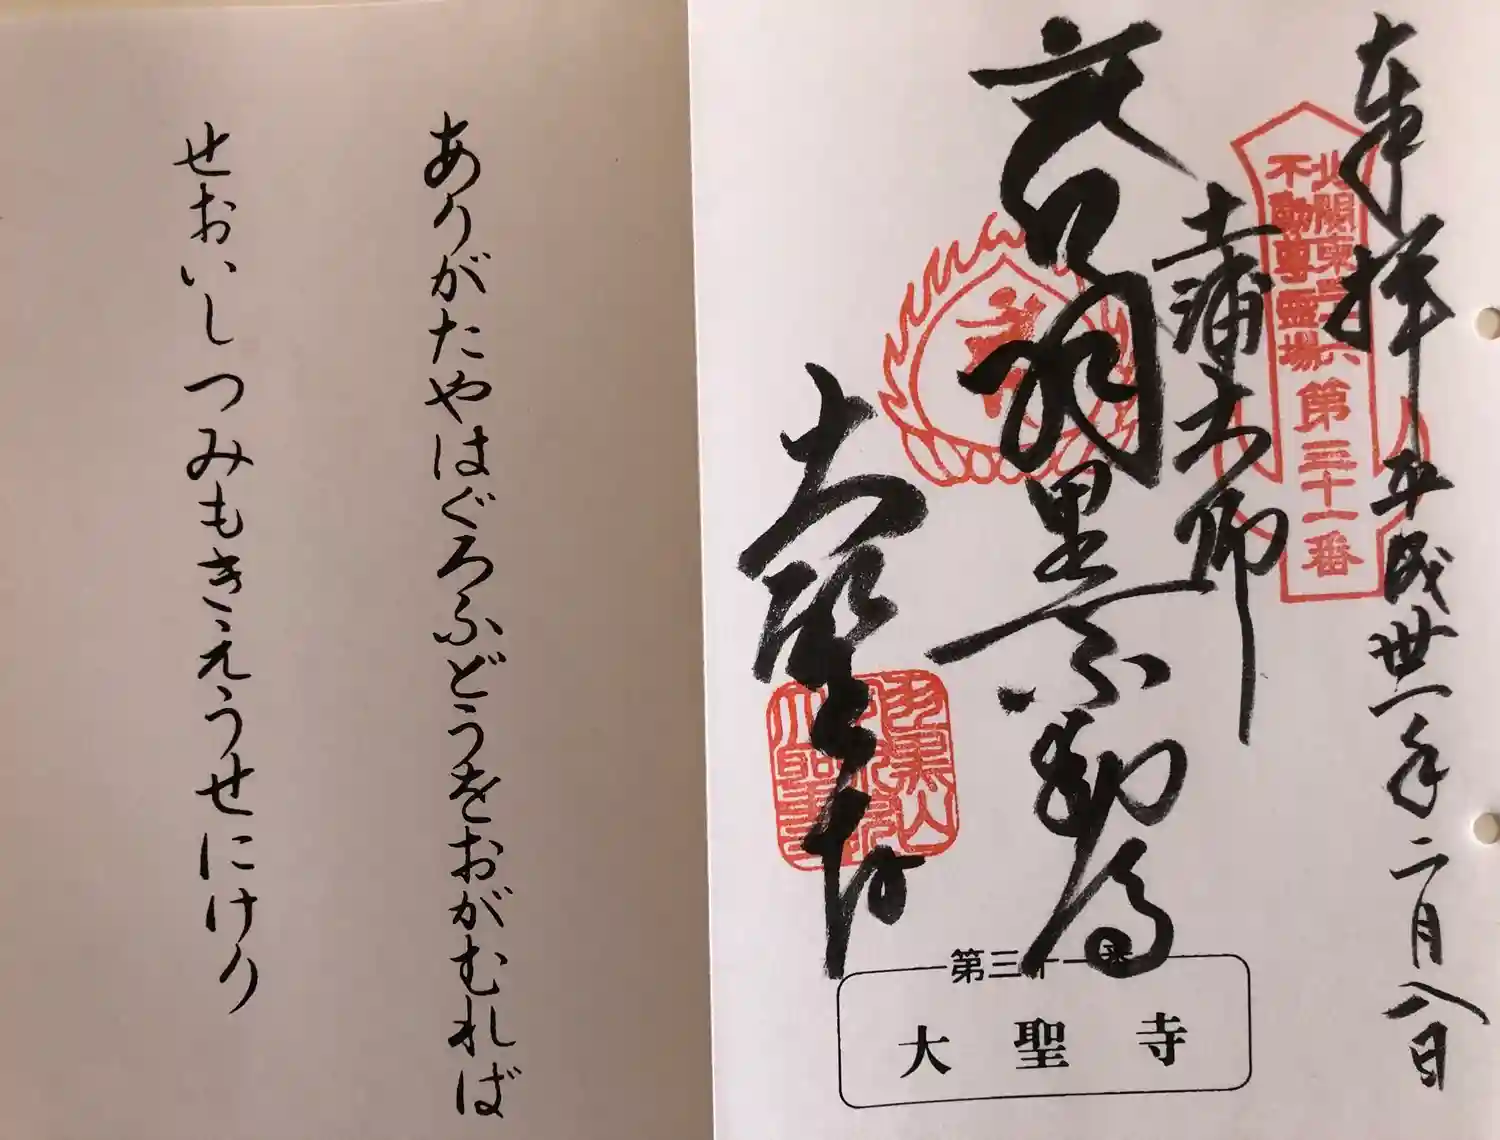 奉拝 平成卅一年二月八日
北関東三十六
不動尊霊場
第三十一番
土浦大師
羽黒不動尊
大聖寺
羽黒山
第三十一番
大聖寺
ありがたやはぐろふどうをおがむれば
せおいしつみもきえうせにけり